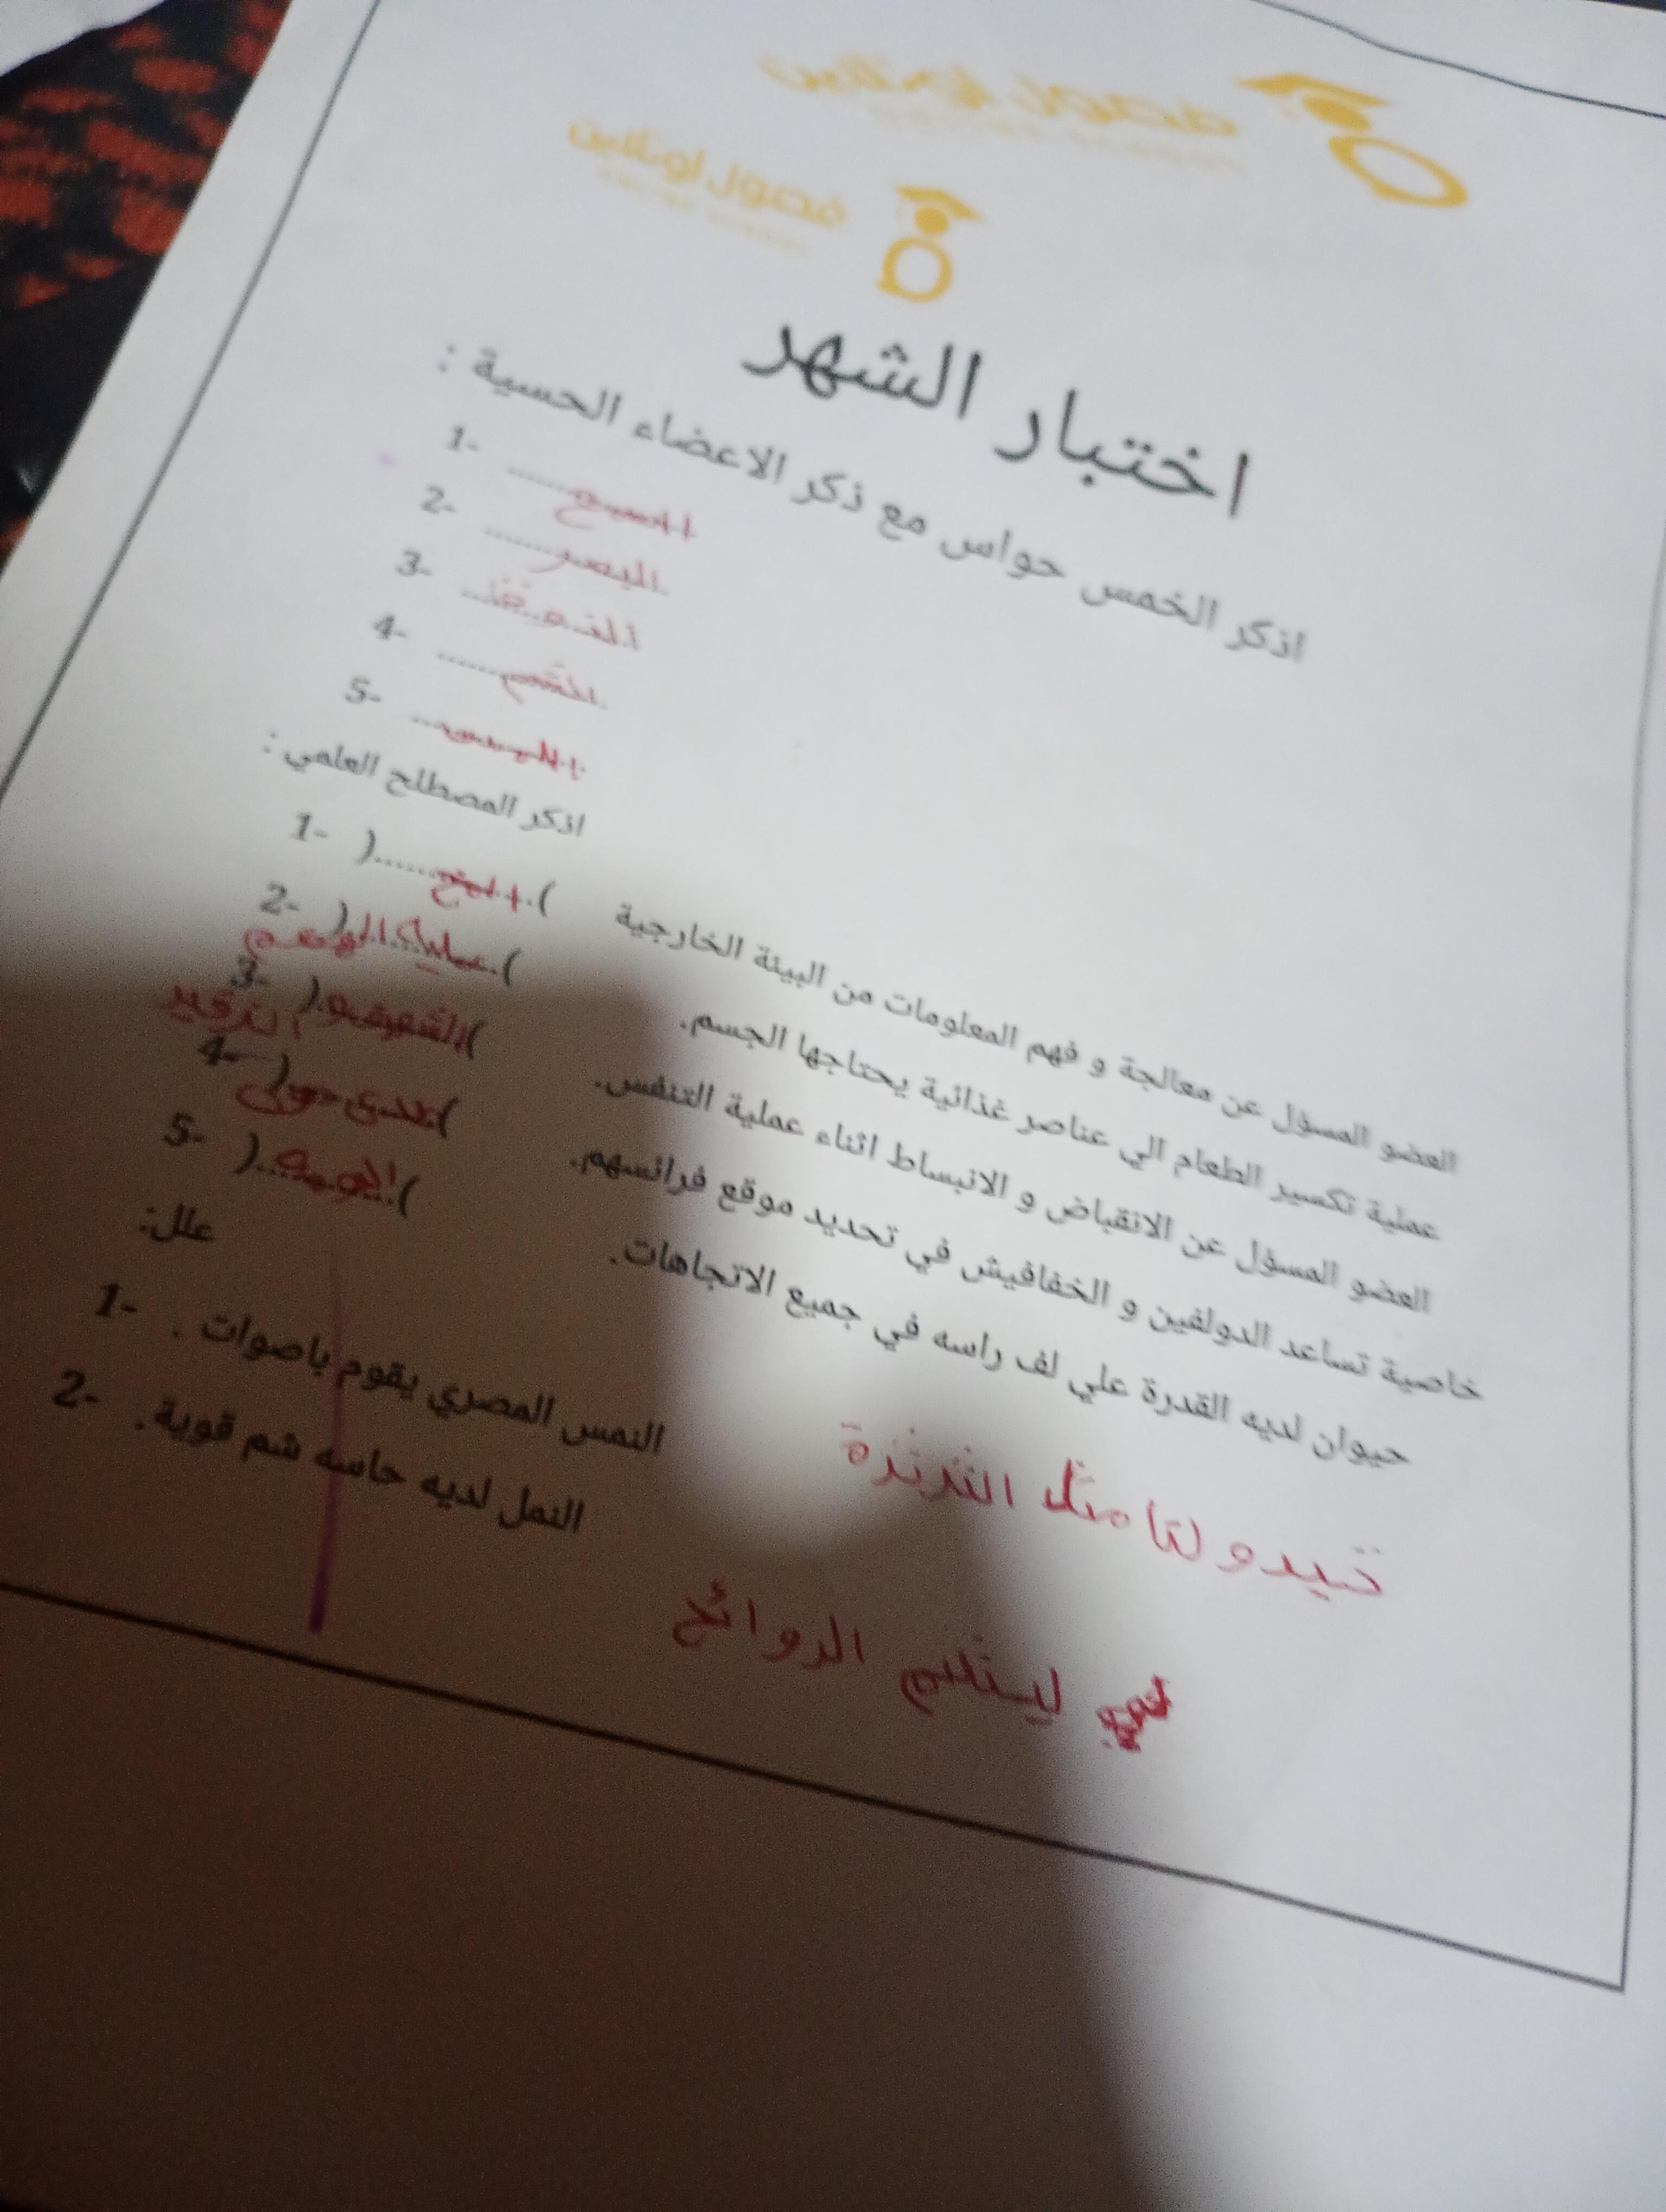 فصول اونلاين
فصول اونلاين
اختبار الشهر
اذكر الخمس حواس مع ذكر الاعضاء الحسية :
1- السمع
2- البصر
3-
4- الشم
5-
اذكر المصطلح العلمي :
1- (المخ) العضو المسؤل عن معالجة و فهم المعلومات من البيئة الخارجية
2- (عملية الهضم) عملية تكسير الطعام الي عناصر غذائية يحتاجها الجسم.
3- ( ) العضو المسؤل عن الانقباض و الانبساط اثناء عملية التنفس.
4- ( ) خاصية تساعد الدولفين و الخفافيش في تحديد موقع فرائسهم.
5- ( ) حيوان لديه القدرة علي لف راسه في جميع الاتجاهات.
علل:
1- النمس المصري يقوم باصوات .
تبدو لنا مثل الثرثرة
2- النمل لديه حاسه شم قوية .
ليشم الروائح